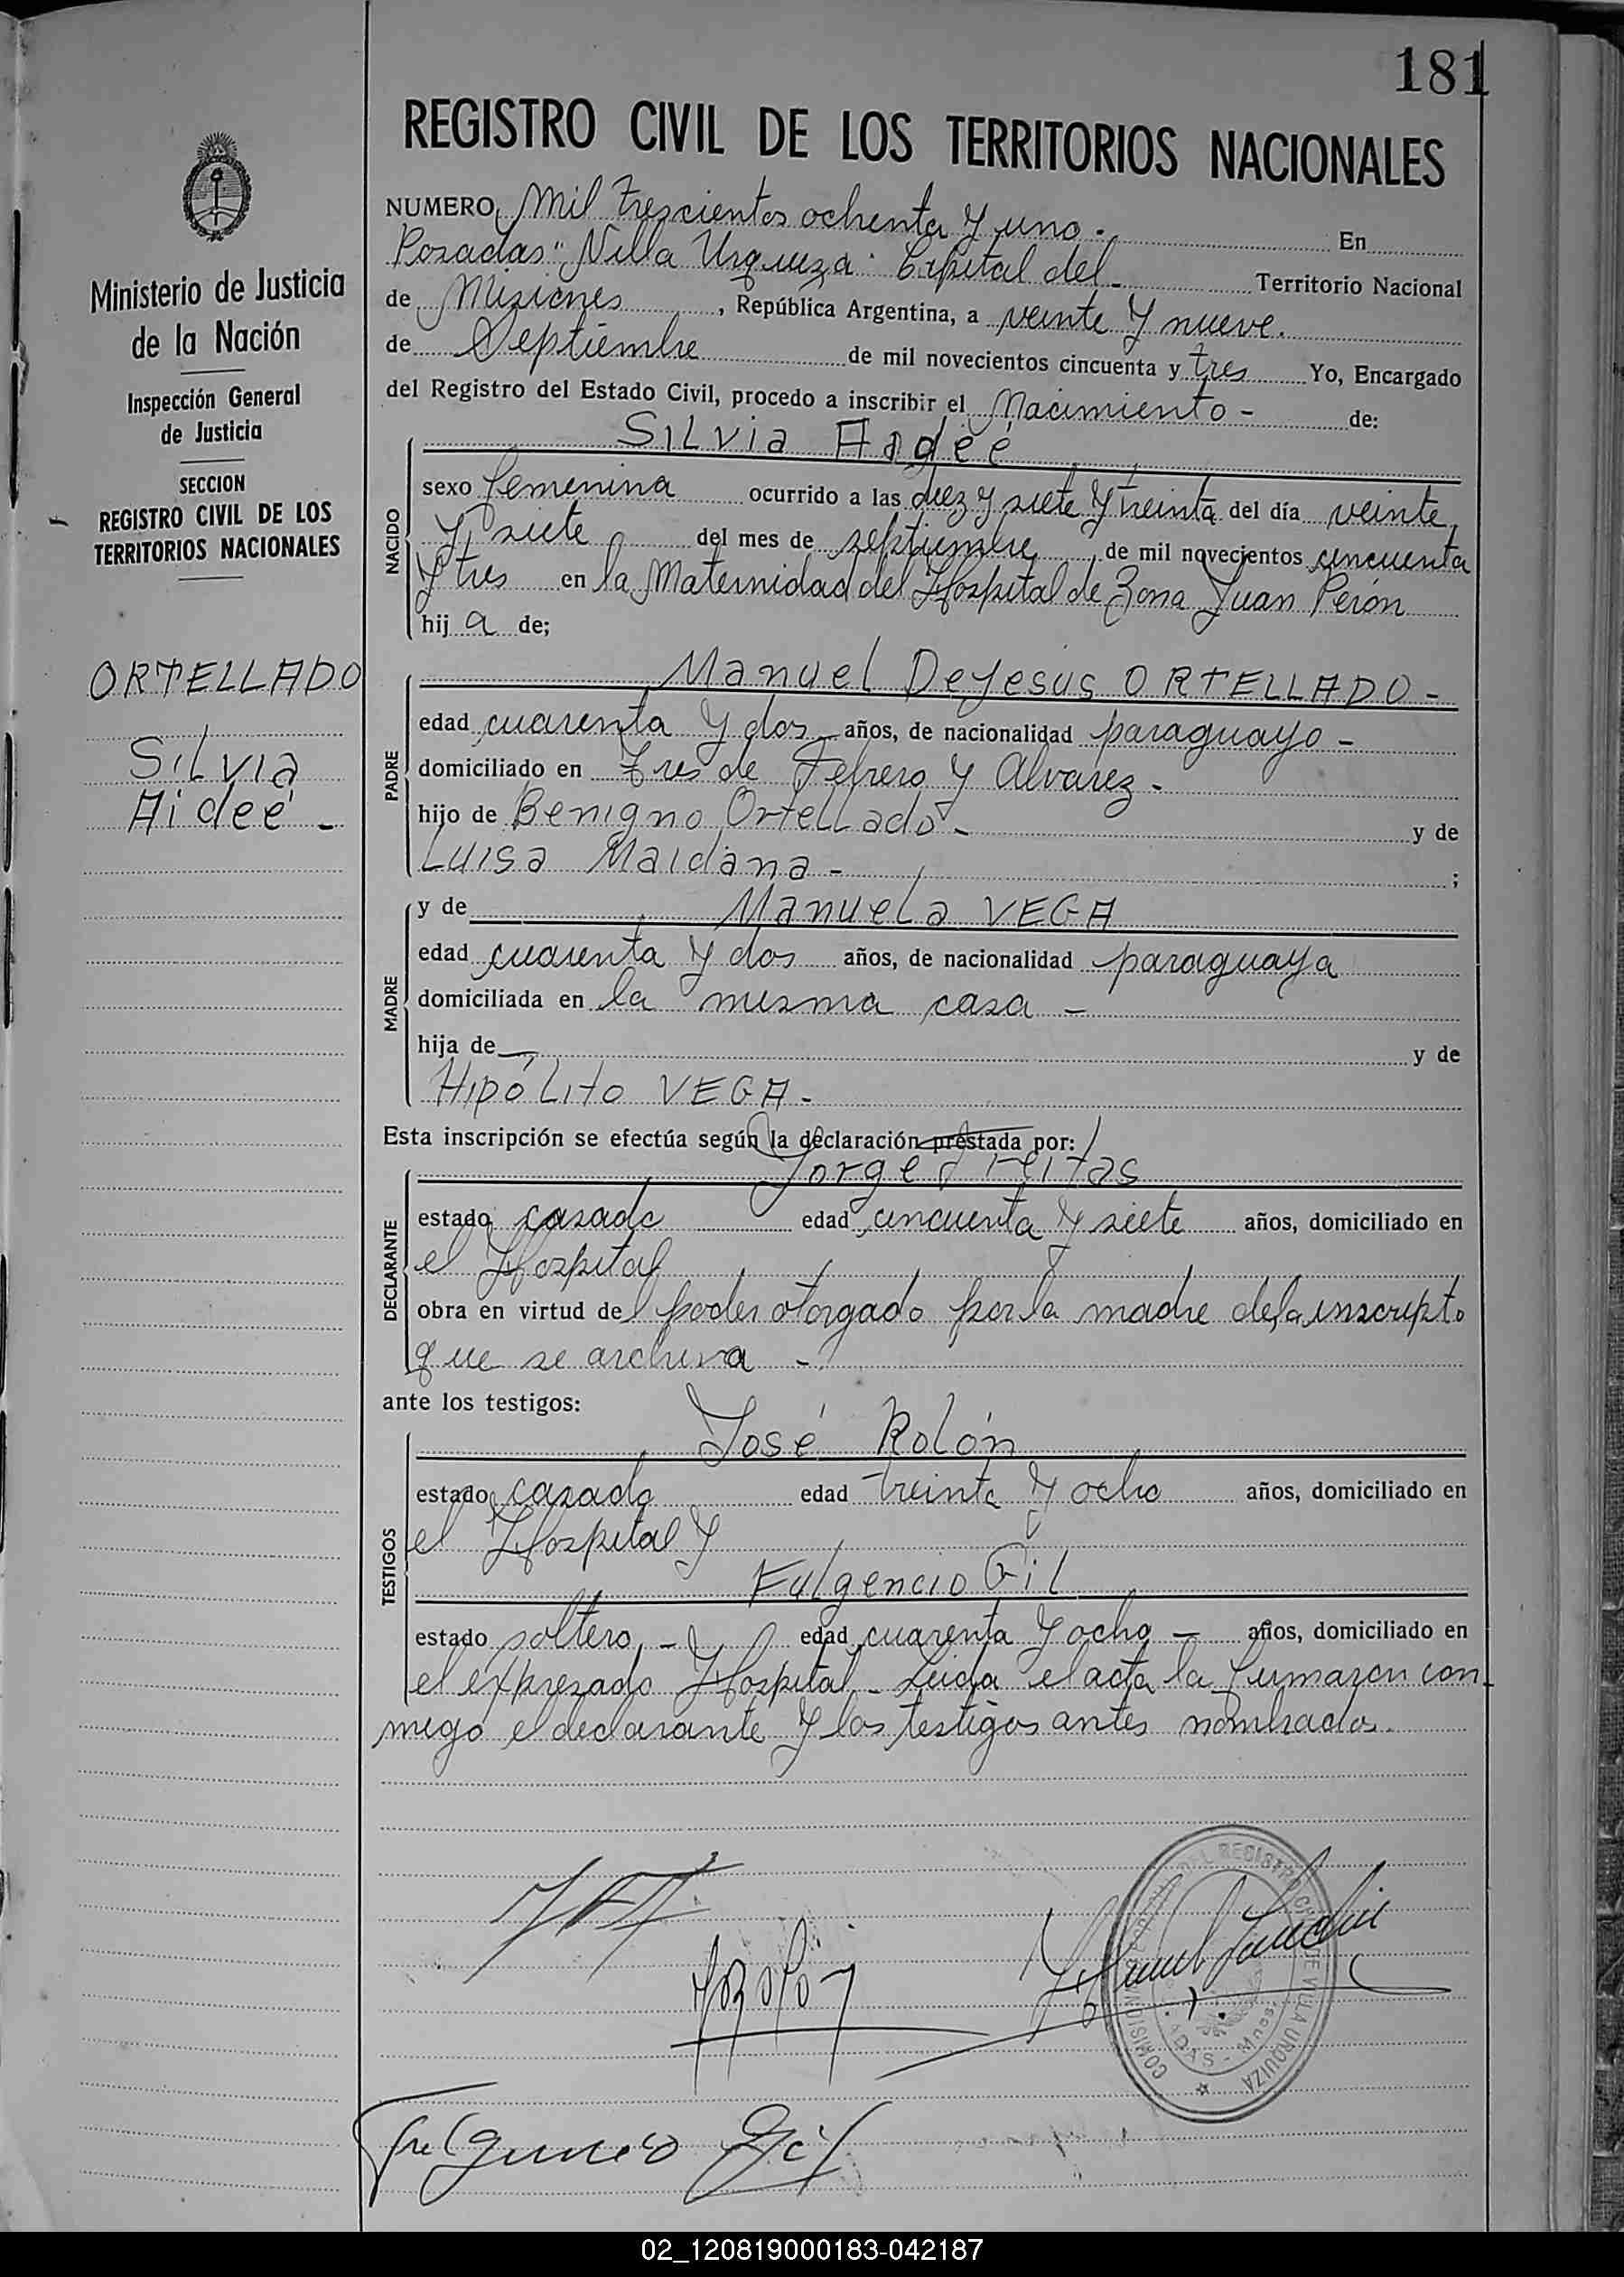 181
REGISTRO CIVIL DE LOS TERRITORIOS NACIONALES
Ministerio de Justicia
de la Nación
Inspección General
de Justicia
SECCION
REGISTRO CIVIL DE LOS
TERRITORIOS NACIONALES
ORTELLADO
Silvia
Aideé -
NUMERO Mil trescientos ochenta y uno - En
Posadas "Villa Urquiza" Capital del Territorio Nacional
de Misiones, República Argentina, a veinte y nueve.
de Septiembre de mil novecientos cincuenta y tres Yo, Encargado
del Registro del Estado Civil, procedo a inscribir el Nacimiento - de:
Silvia
NACIDO
sexo femenina ocurrido a las diez y siete y treinta del día veinte
y siete del mes de septiembre, de mil novecientos cincuenta
y tres en la Maternidad del Hospital de Zona Juan Perón
hij a de;
PADRE
Manuel DeJesús ORTELLADO -
edad cuarenta y dos años, de nacionalidad paraguayo -
domiciliado en tres de Febrero y Alvarez -
hijo de Benigno Ortellado - y de
Luisa Maidana - ;
MADRE
y de Manuela VEGA
edad cuarenta y dos años, de nacionalidad paraguaya
domiciliada en la misma casa -
hija de — y de
Hipólito VEGA -
Esta inscripción se efectúa según la declaración prestada por:
DECLARANTE
Jorge Freitas
estado casado edad cincuenta y siete años, domiciliado en
el Hospital
obra en virtud del poder otorgado por la madre de la inscripto
que se archiva -
ante los testigos:
TESTIGOS
José Rolón
estado casado edad treinta y ocho años, domiciliado en
el Hospital y
Fulgencio Gil
estado soltero - edad cuarenta y ocho — años, domiciliado en
el expresado Hospital - Leida el acta la firmaron con
migo el declarante y los testigos antes nombrados.
DEL REGISTRO CIVIL DE VILLA URQUIZA
Fulgencio Gil
02_120819000183-042187